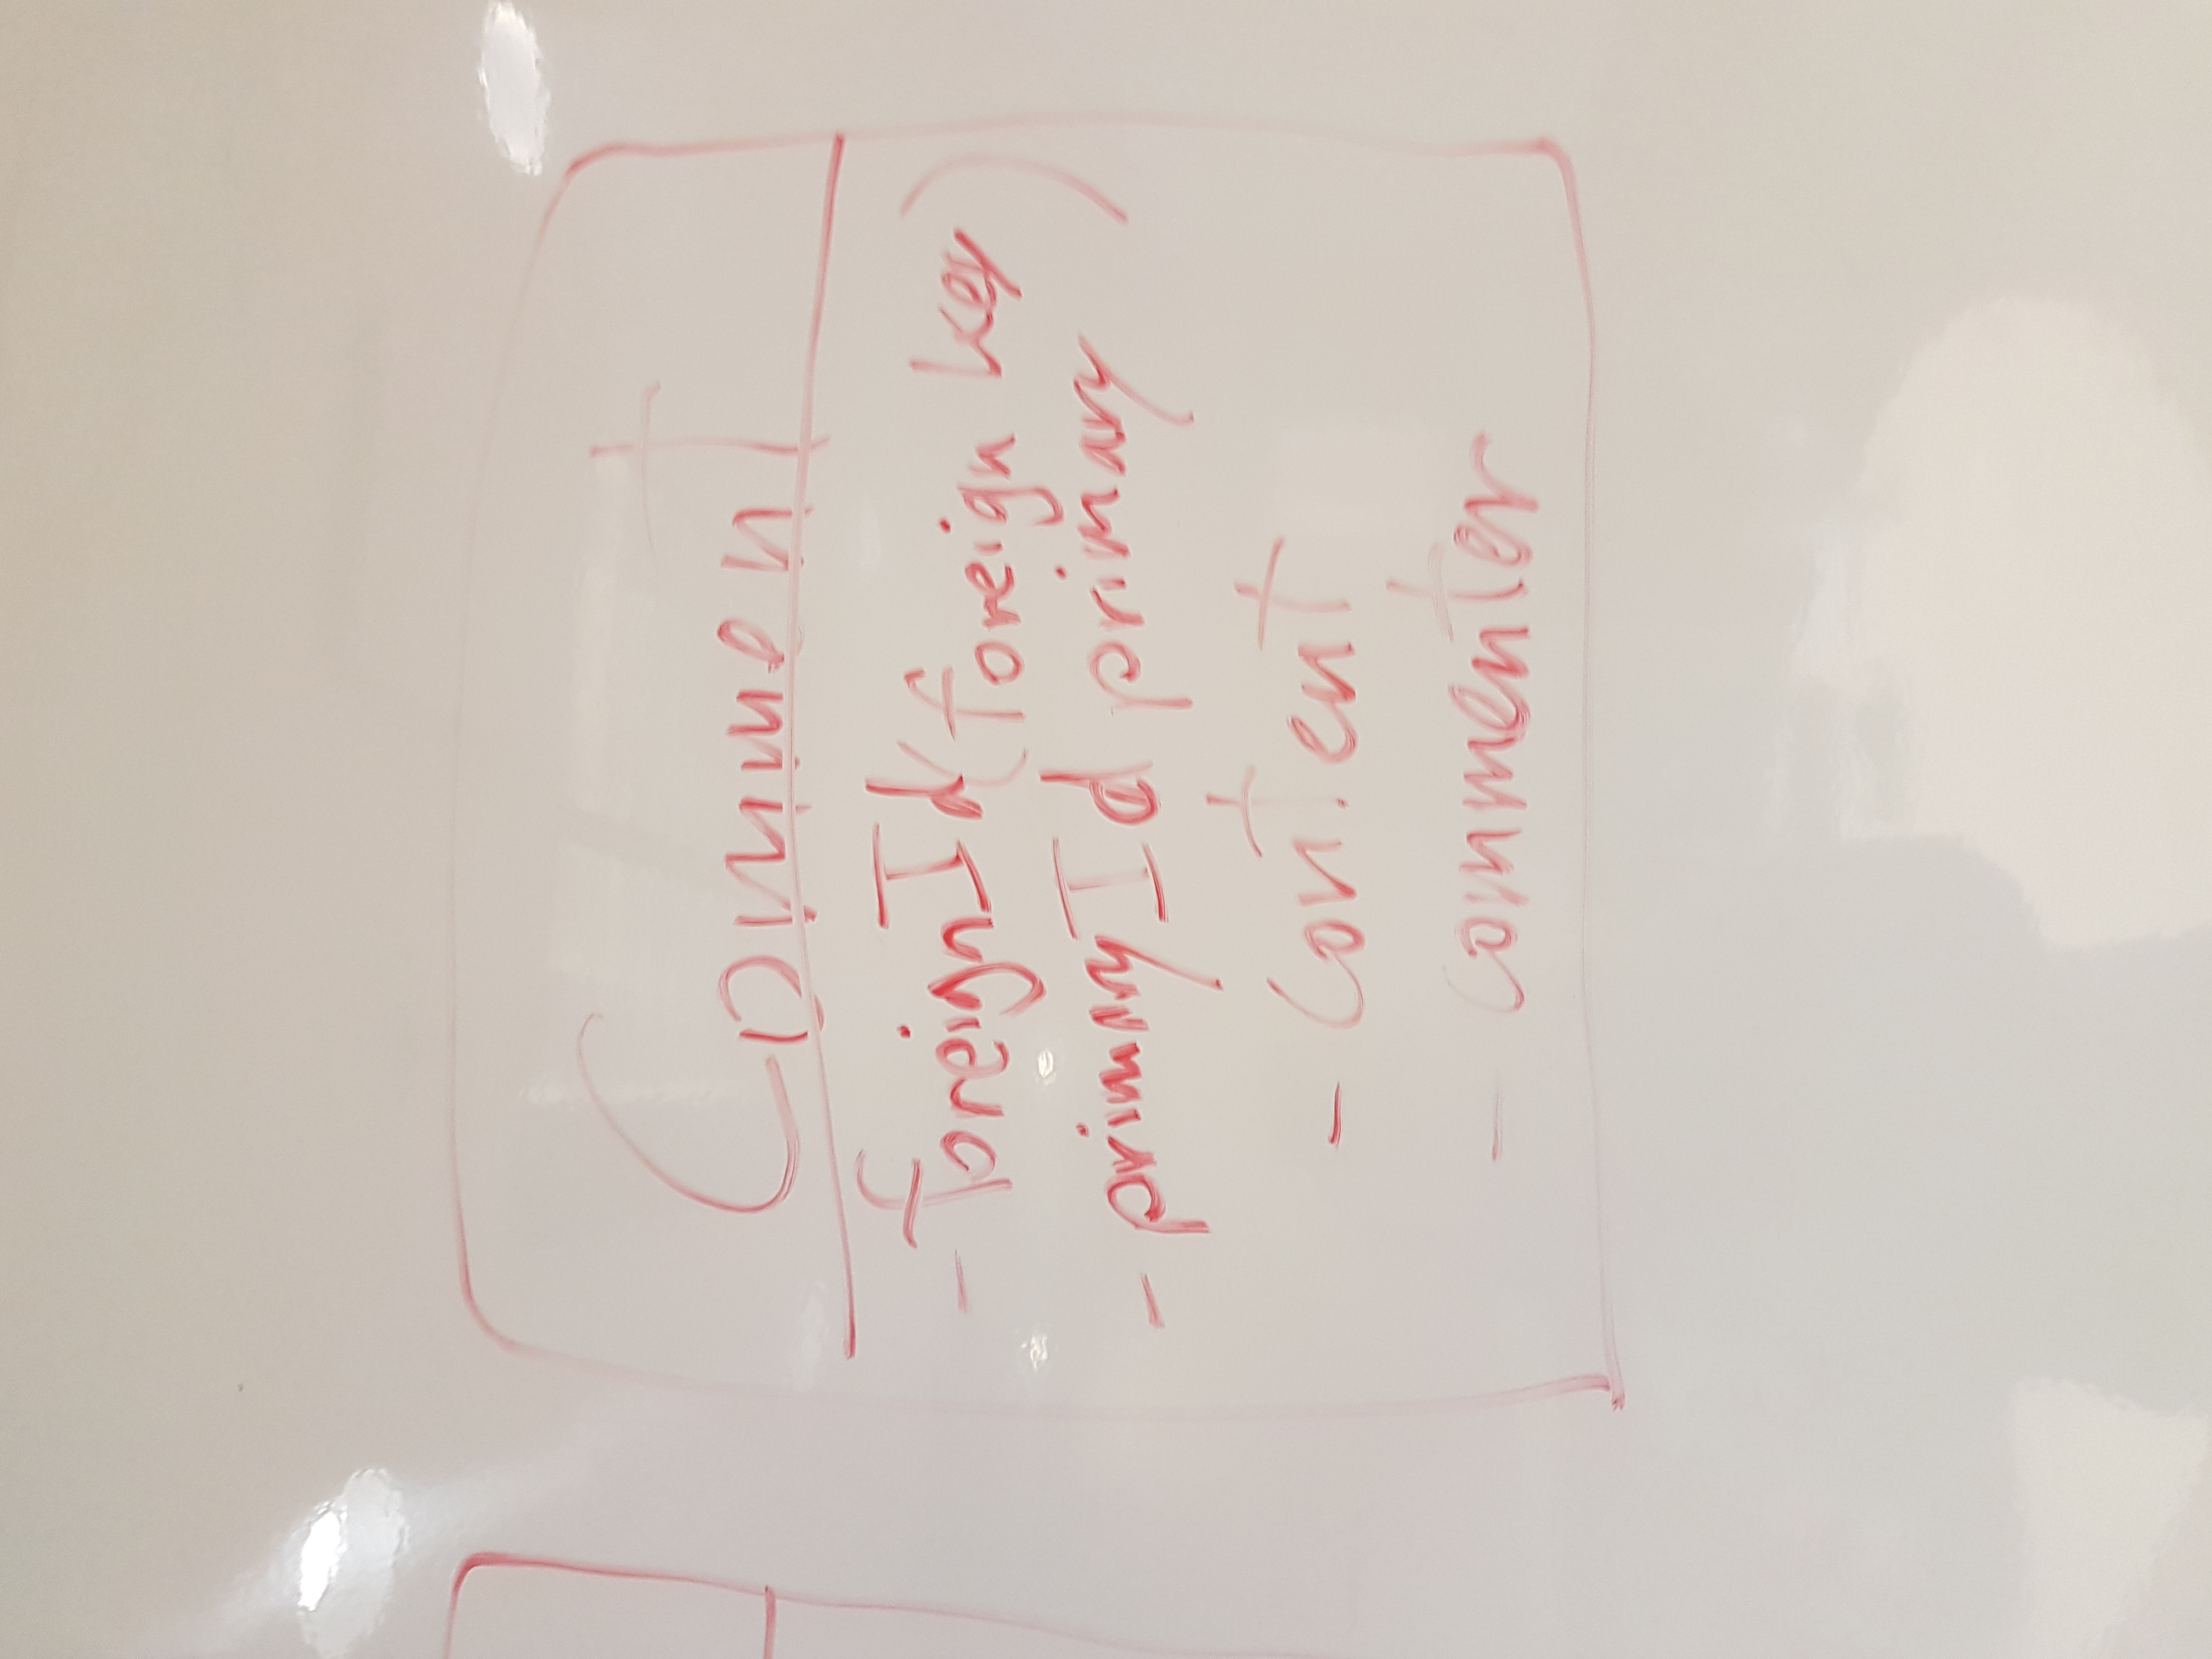 Comment
- foreignId (foreign key)
- primaryId primary
- Content
- Commenter